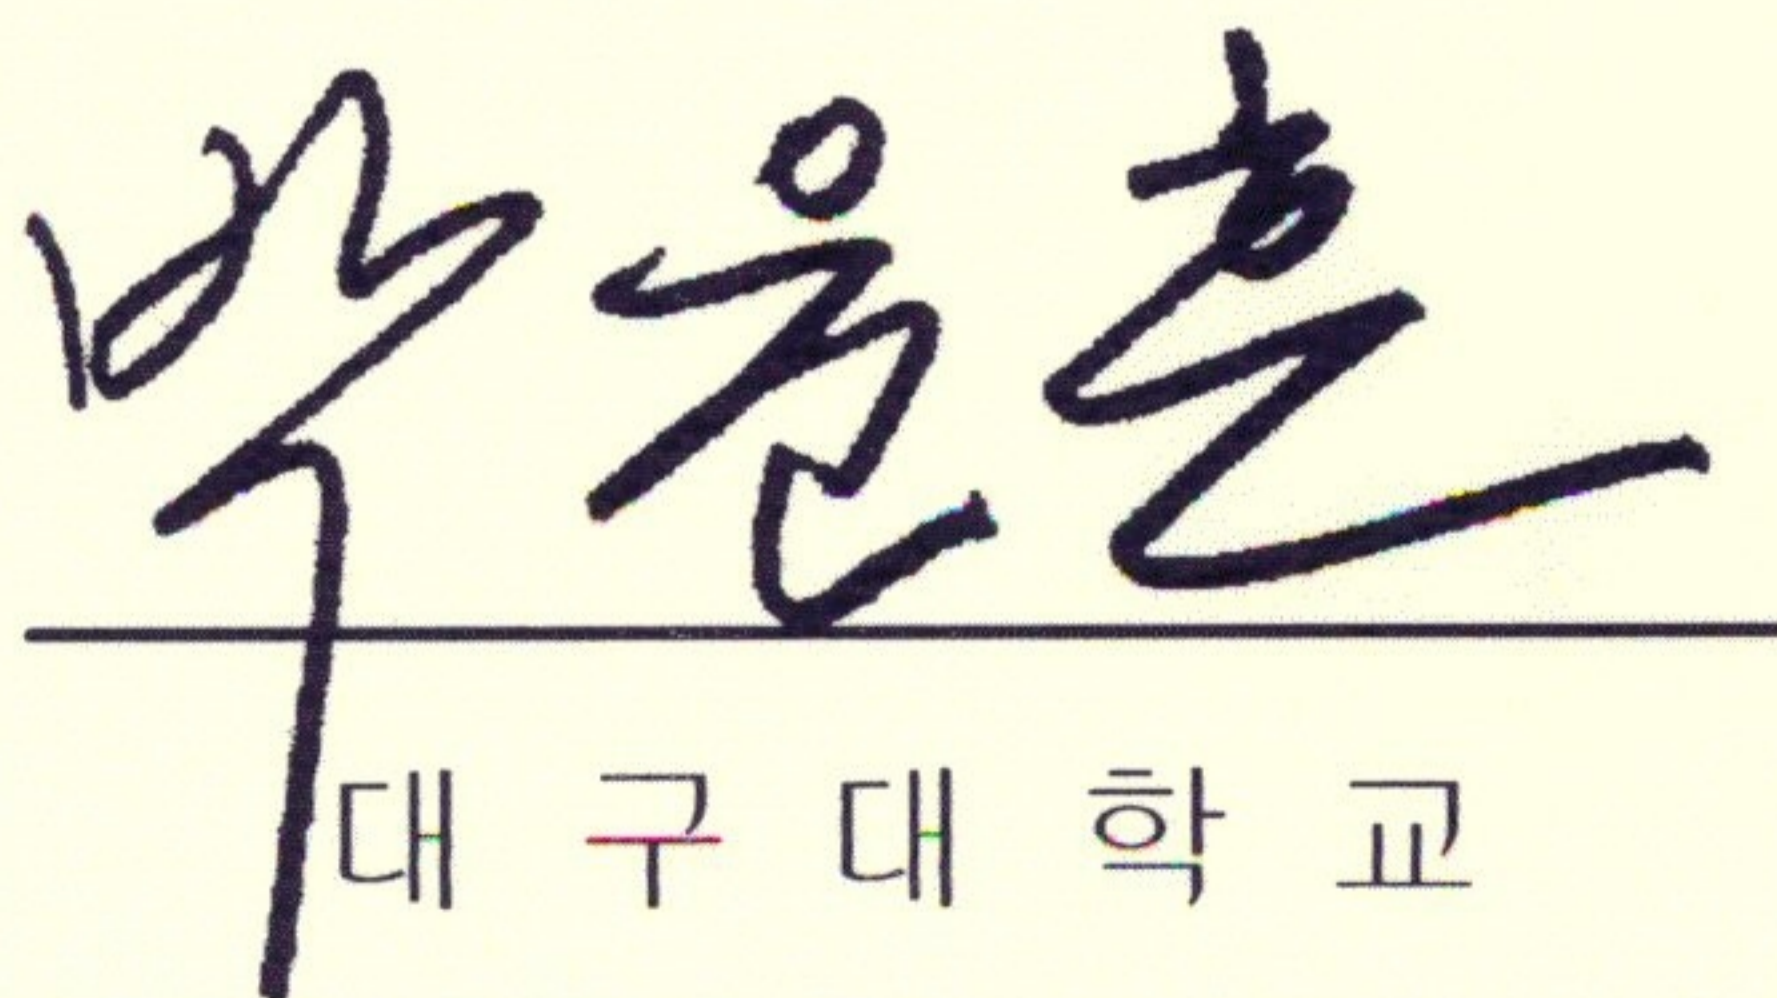 박윤흔
대구대학교